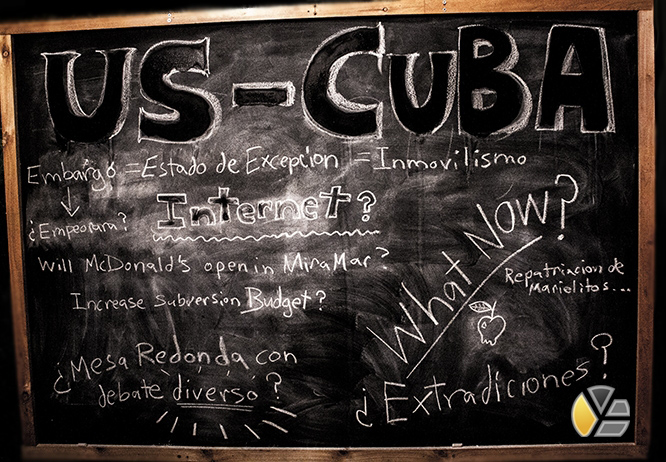 US-CUBA
Embargo = Estado de Excepcion = Inmovilismo
¿Empeorara?
Internet?
Will McDonald's open in MiraMar?
Increase Subversion Budget?
What Now?
Repatriacion de
Marielitos...
¿Mesa Redonda con
debate diverso?
¿Extradiciones?